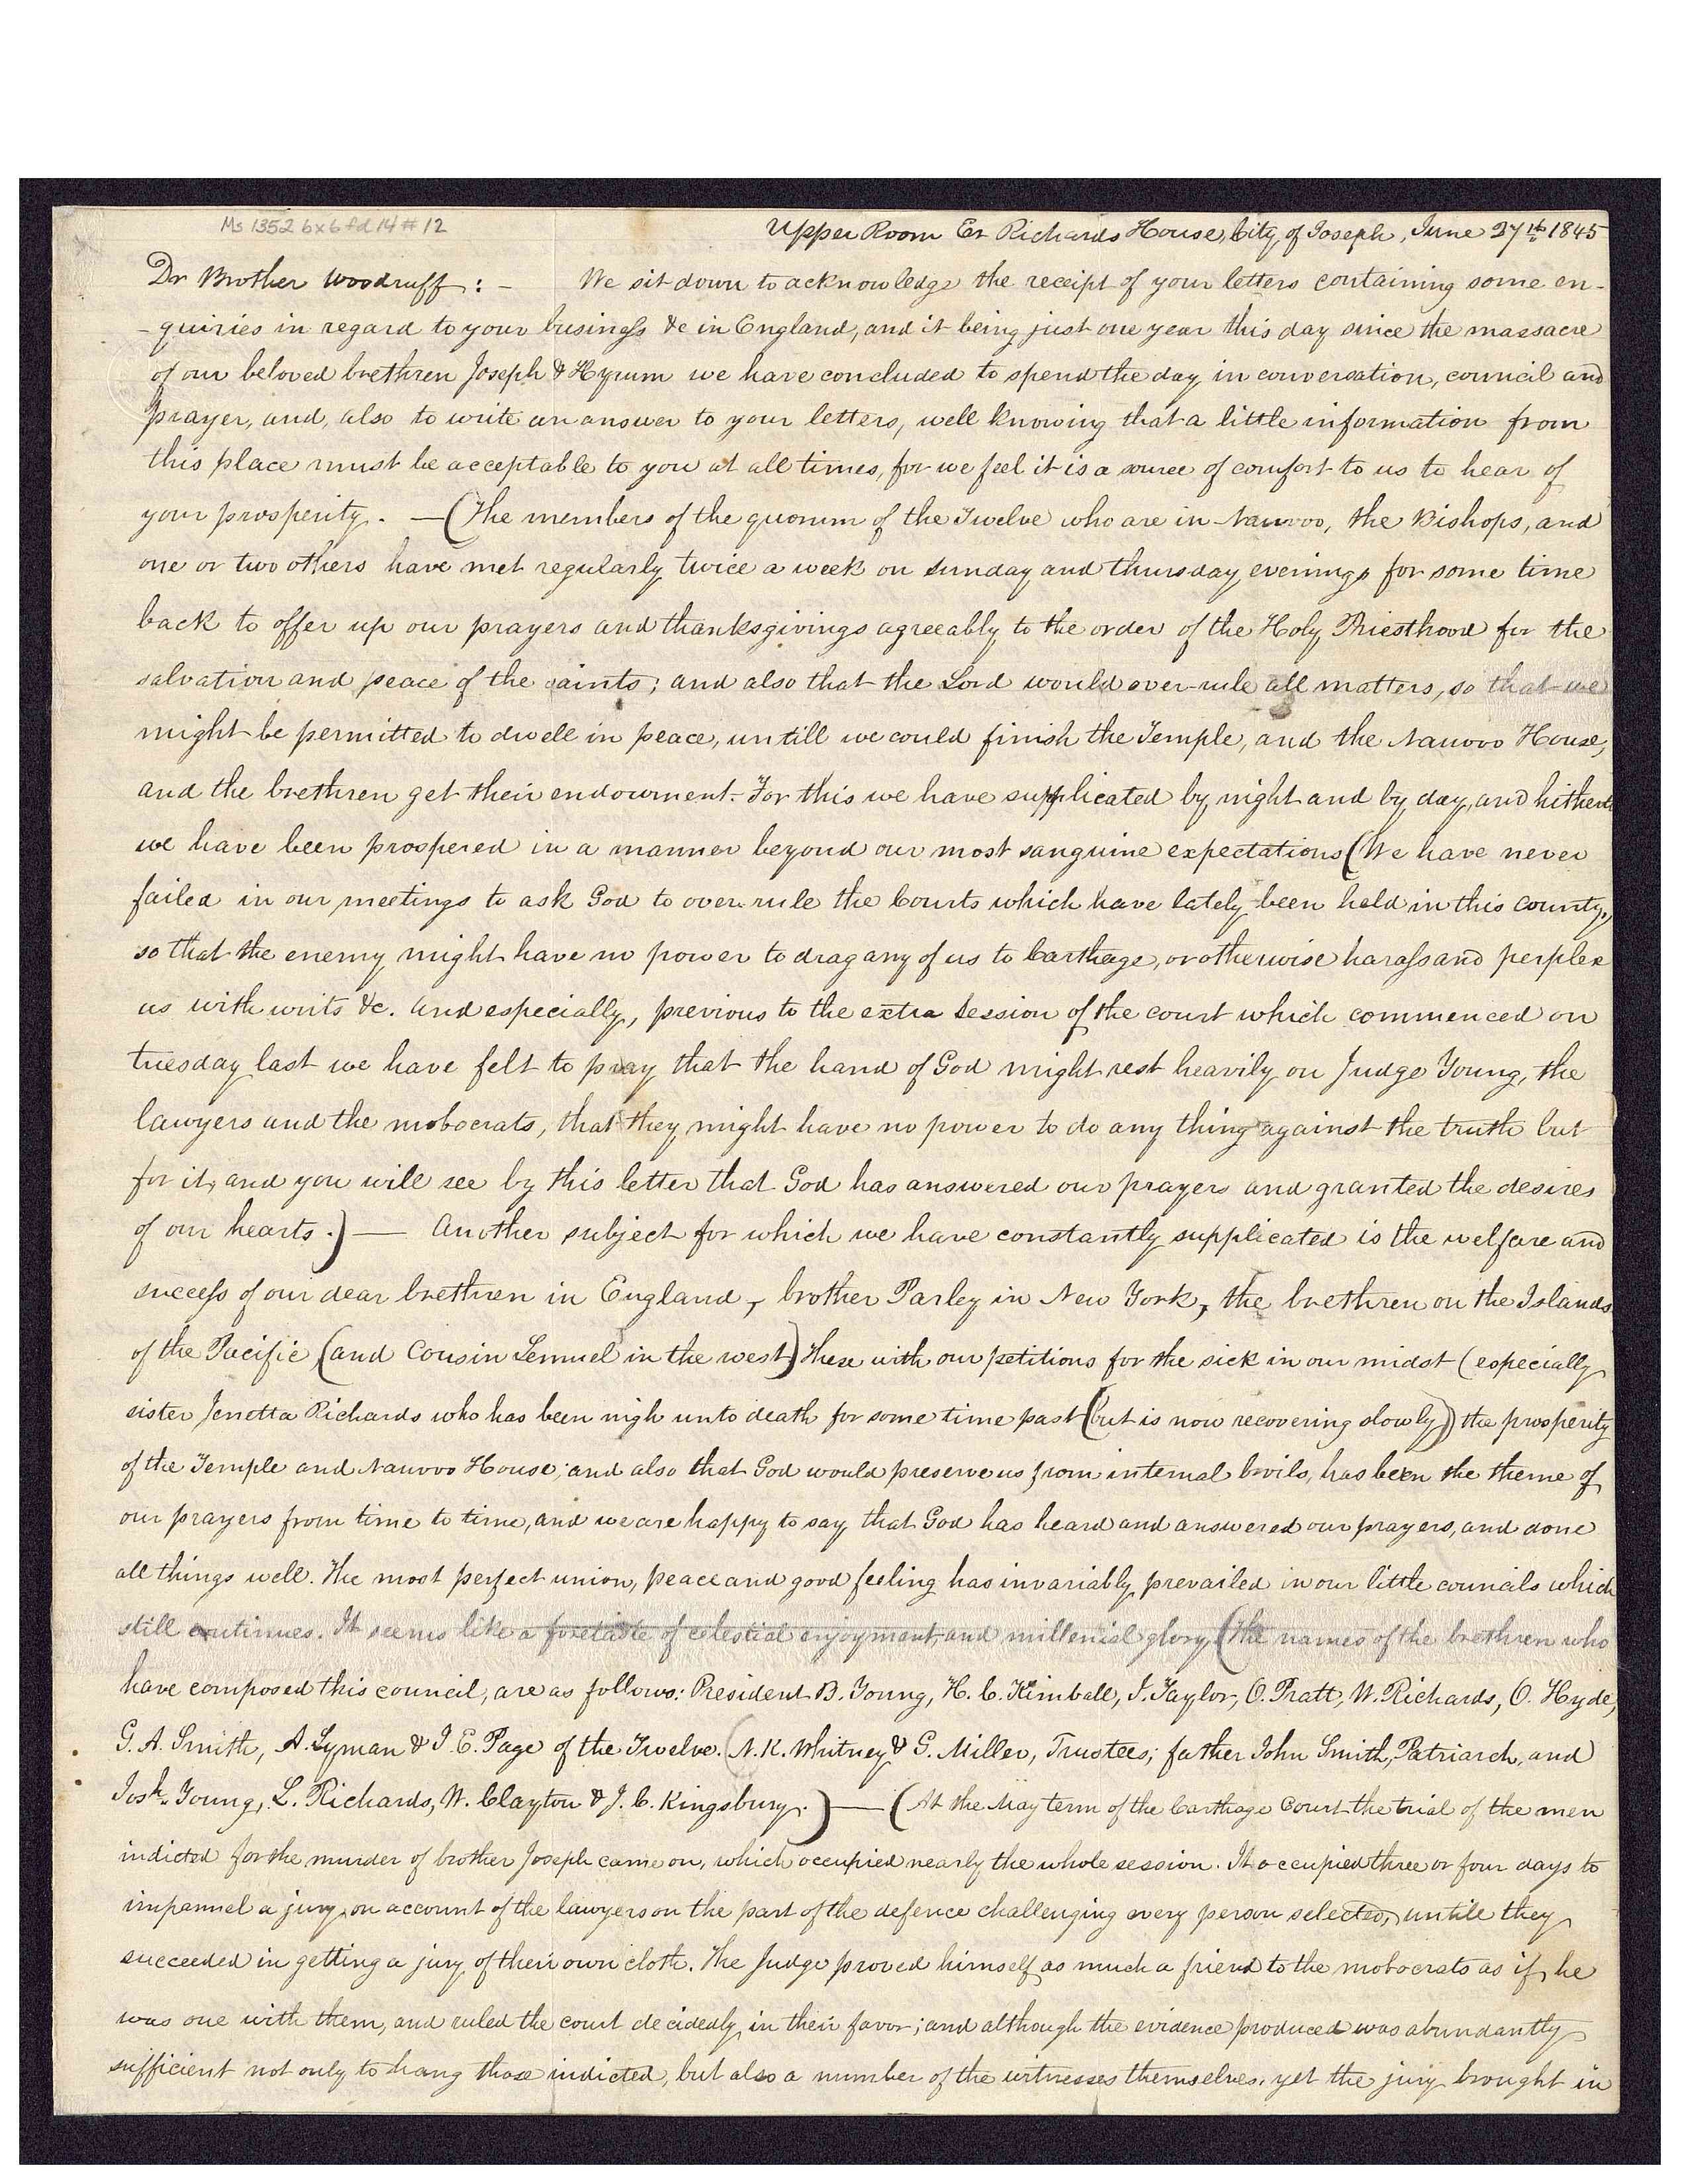 Ms 1352 bx6 fd 14 # 12
Upper Room Er Richards House, City of Joseph, June 27th 1845
Dr Brother Woodruff: - We sit down to acknowledge the receipt of your letters containing some en-
-quiries in regard to your business &c in England, and it being just one year this day since the massacre
of our beloved brethren Joseph & Hyrum we have concluded to spend the day in conversation, council and
prayer, and, also to write an answer to your letters, well knowing that a little information from
this place must be acceptable to you at all times, for we feel it is a source of comfort to us to hear of
your prosperity. — (The members of the quorum of the Twelve who are in Nauvoo, the Bishops, and
one or two others have met regularly twice a week on Sunday and thursday evenings for some time
back to offer up our prayers and thanksgivings agreeably to the order of the Holy Priesthood for the
salvation and peace of the saints; and also that the Lord would over-rule all matters, so that we
might be permitted to dwell in peace, untill we could finish the Temple, and the Nauvoo House,
and the brethren get their endowment. For this we have supplicated by night and by day, and hitherto
we have been prospered in a manner beyond our most sanguine expectations (We have never
failed in our meetings to ask God to over-rule the Courts which have lately been held in this county,
so that the enemy might have no power to drag any of us to Carthage, or otherwise harass and perplex
us with writs &c. and especially, previous to the extra Session of the court which commenced on
tuesday last we have felt to pray that the hand of God might rest heavily on Judge Young, the
lawyers and the mobocrats, that they might have no power to do any thing against the truth but
for it, and you will see by this letter that God has answered our prayers and granted the desires
of our hearts.) — Another subject for which we have constantly supplicated is the welfare and
success of our dear brethren in England, brother Parley in New York, the brethren on the Islands
of the Pacific (and Cousin Lemuel in the west) these with our petitions for the sick in our midst (especially
sister Jenetta Richards who has been nigh unto death for some time past (but is now recovering slowly)) the prosperity
of the Temple and Nauvoo House; and also that God would preserve us from internal broils, has been the theme of
our prayers from time to time, and we are happy to say that God has heard and answered our prayers, and done
all things well. The most perfect union, peace and good feeling has invariably prevailed in our little councils which
still continues. It seems like a foretaste of celestial enjoyment, and millenial glory. (The names of the brethren who
have composed this council, are as follows: President B. Young, H. C. Kimball, J. Taylor, O. Pratt, W. Richards, O. Hyde,
G. A. Smith, A. Lyman & J. E. Page of the Twelve. (N. K. Whitney & G. Miller, Trustees; father John Smith, Patriarch, and
Josh. Young, L. Richards, W. Clayton & J. C. Kingsbury.) — (At the May term of the Carthage Court the trial of the men
indicted for the murder of brother Joseph came on, which occupied nearly the whole session. It occupied three or four days to
impannel a jury, on account of the lawyers on the part of the defence challenging every person selected, untill they
succeeded in getting a jury of their own cloth. The Judge proved himself as much a friend to the mobocrats as if he
was one with them, and ruled the court decidedly in their favor; and although the evidence produced was abundantly
sufficient not only to hang those indicted, but also a number of the witnesses themselves, yet the jury brought in